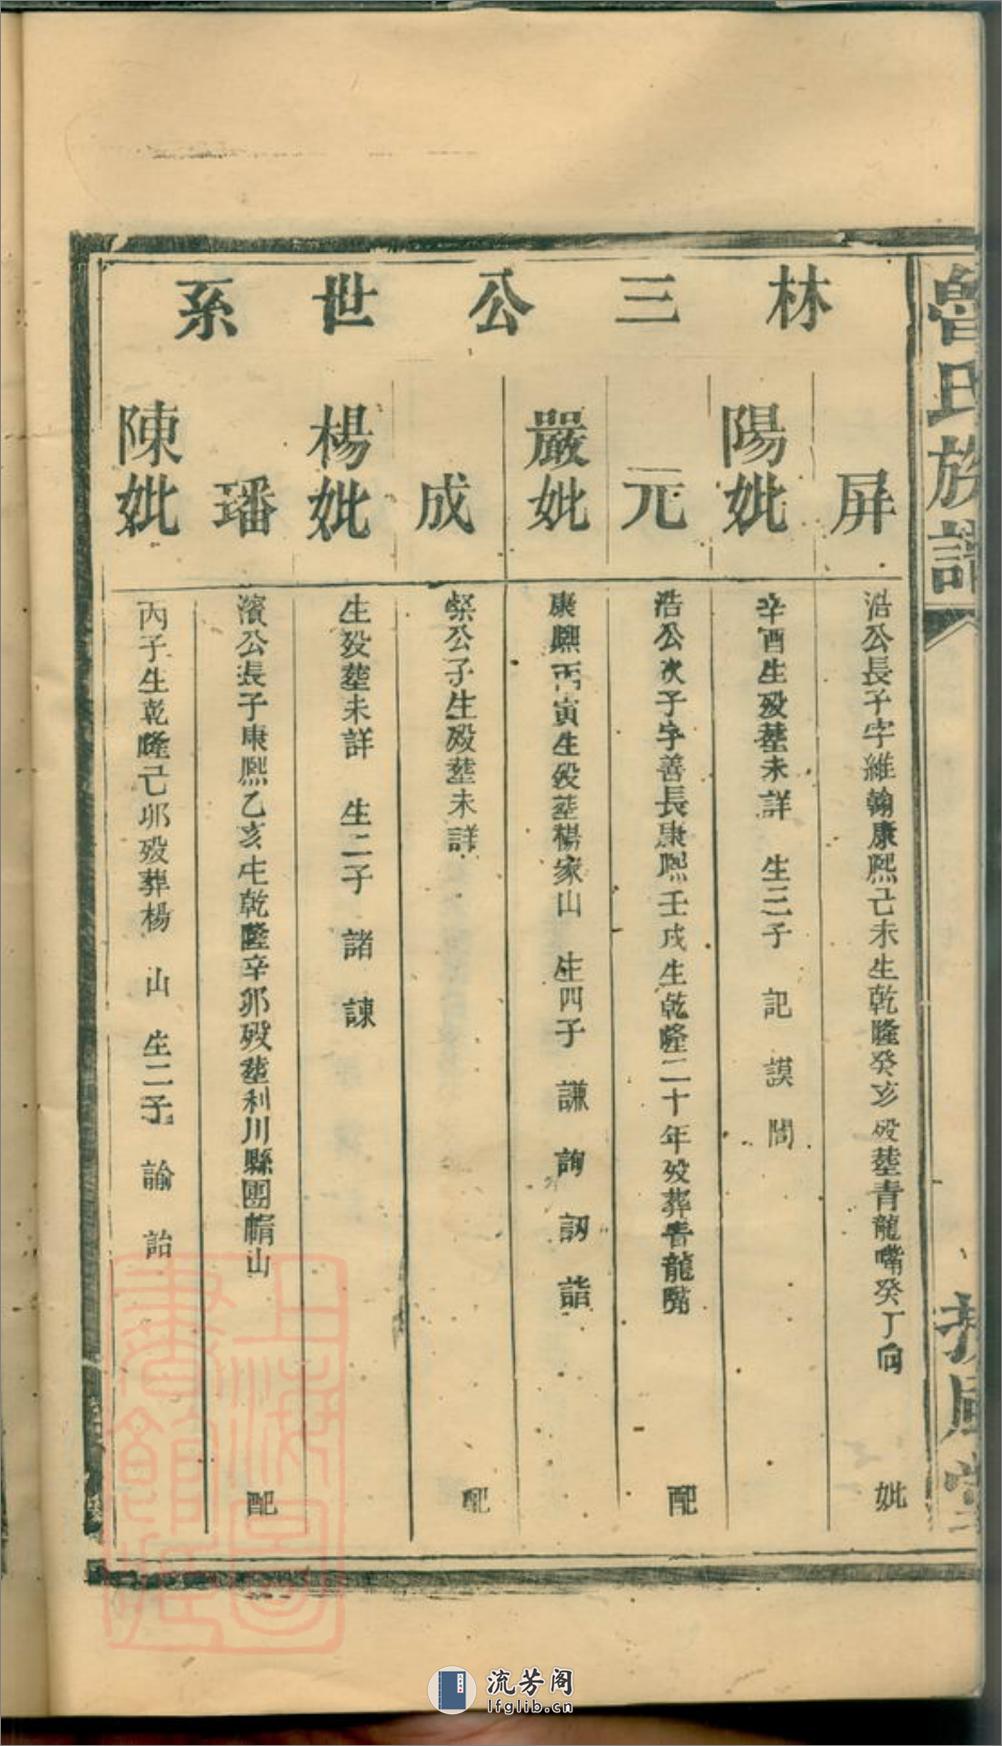 魯氏族譜
林三公世系
屏
浩公長子字維翰康熙己未生乾隆癸亥歿塟青龍嘴癸丁向 妣
陽妣
辛酉生歿塟未詳 生三子 記 謨 誾
元
浩公次子字善長康熙壬戌生乾隆二十年歿葬青龍嘴 配
嚴妣
康熙丙寅生歿塟楊家山 生四子 謙 詢 訒 詣
成
公子生歿塟未詳 配
楊妣
生歿塟未詳 生二子 諸 諫
璠
濱公長子康熙乙亥生乾隆辛卯歿塟利川縣團山 配
陳妣
丙子生乾隆己卯歿葬楊 山 生二子 諭 詒
扶風堂
上海圖書館藏
流芳阁
lfglib.cn